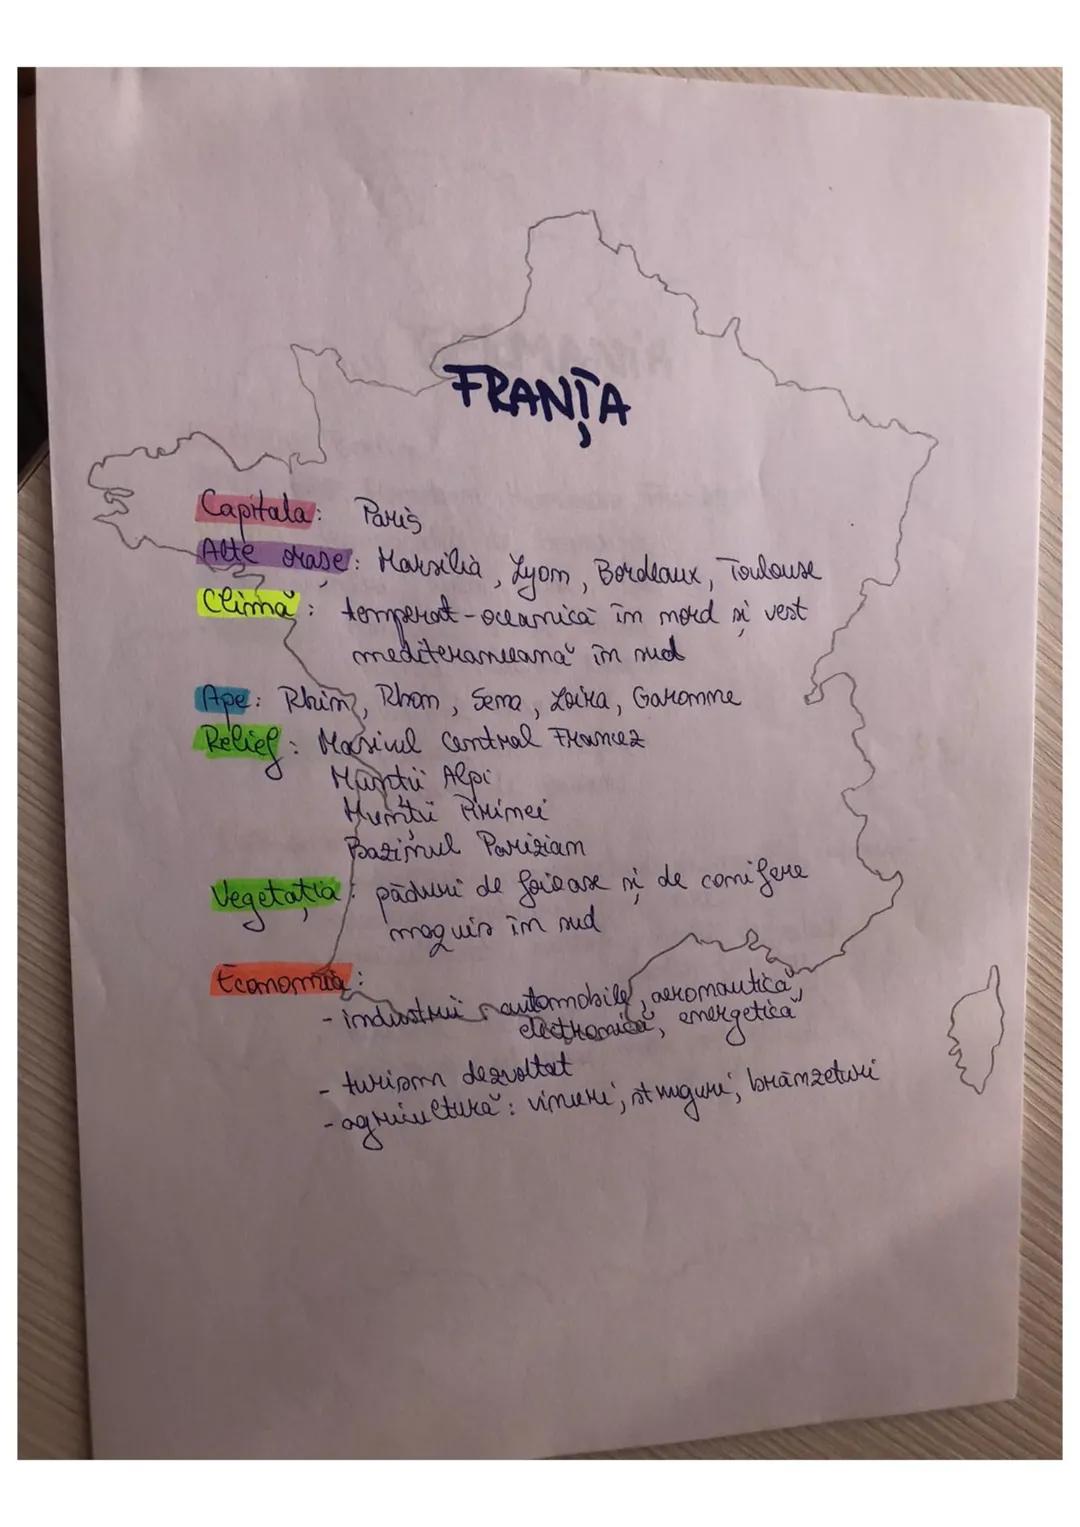 FRANȚA
Capitala: Paris
Alte orașe: Marsilia, Lyon, Bordeaux, Toulouse
Climă: temperat-oceanică în nord și vest
mediteraneeană în sud
Ape: Rhin, Rhon, Sena, Loira, Garonne
Relief: Masivul Central Francez
Munții Alpi
Munții Pirinei
Bazinul Parizian
Vegetația: păduri de foioase și de conifere
maquis în sud
Economia:
- industrii automobile, aeronautică,
electronică, energetică
- turism dezvoltat
- agricultură: vinuri, struguri, brânzeturi